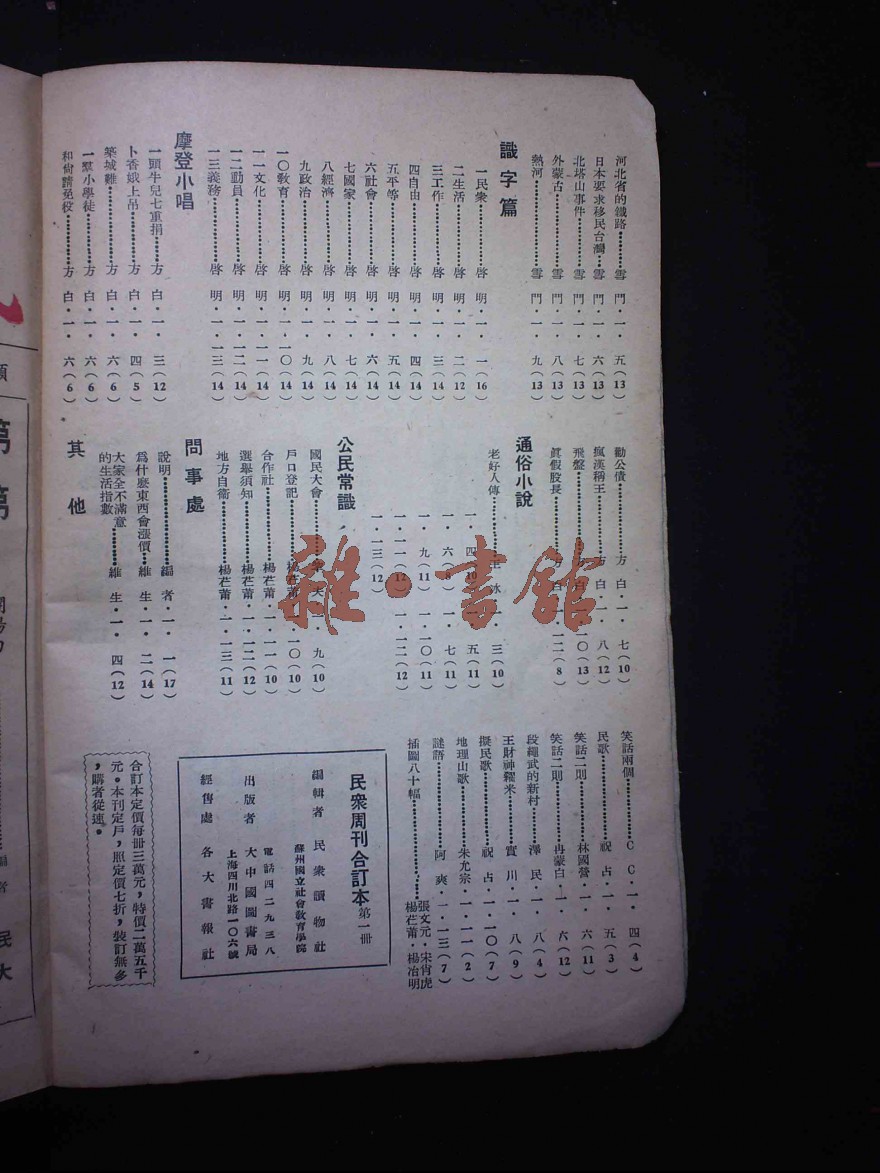 河北省的鐵路………雪　門．一．　五(13)
日本要求移民台灣…雪　門．一．　六(13)
北塔山事件…………雪　門．一．　七(13)
外蒙古………………雪　門．一．　八(13)
熱河…………………雪　門．一．　九(13)
識字篇
一民衆………啓　明．一．　一(16)
二生活………啓　明．一．　二(12)
三工作………啓　明．一．　三(14)
四自由………啓　明．一．　四(14)
五平等………啓　明．一．　五(14)
六社會………啓　明．一．　六(14)
七國家………啓　明．一．　七(14)
八經濟………啓　明．一．　八(14)
九政治………啓　明．一．　九(14)
一〇教育……啓　明．一．一〇(14)
一一文化……啓　明．一．一一(14)
一二動員……啓　明．一．一二(14)
一三義務……啓　明．一．一三(14)
摩登小唱
一頭牛兒七重捐……方　白．一．　三(12)
卜香娥上吊…………方　白．一．　四(5)
築城難………………方　白．一．　六(6)
一羣小學徒…………方　白．一．　六(6)
和尙請免役…………方　白．一．　六(6)
勸公債………………方　白．一．　七(10)
瘋漢稱王……………方　白．一．　八(12)
飛盤…………………方　白．一．一〇(13)
眞假股長……………方　白．一．一二(8)
通俗小說
老好人傳……………王　冰．一．　三(10)
一．　四(10)　一．　五(11)
一．　六(11)　一．　七(11)
一．　九(11)　一．一〇(11)
一．一一(12)　一．一二(12)
一．一三(12)
公民常識
國民大會……………　夫．一．　九(10)
戶口登記……………楊芒莆．一．一〇(10)
合作社………………楊芒莆．一．一一(10)
選舉須知……………楊芒莆．一．一二(12)
地方自衞……………楊芒莆．一．一三(11)
問事處
說明…………………編　者．一．　一(17)
爲什麽東西會漲價…維　生．一．　二(14)
大家全不滿意
的生活指數…………維　生．一．　四(12)
其他
笑話兩個……………C　C．一．　四(4)
民歌…………………祝　占．一．　五(3)
笑話二則……………林國營．一．　六(11)
笑話二則……………冉蒙白．一．　六(12)
段繩武的新村………澤　民．一．　八(4)
王財神糴米…………實　川．一．　八(9)
擬民歌………………祝　占．一．一〇(7)
地理山歌……………朱允宗．一．一一(2)
謎語…………………阿　爽．一．一三(7)
插圖八十幅…………張文元．宋肖虎
楊芒莆．楊冶明
民衆周刊合訂本第一册
編輯者　民衆讀物社
蘇州國立社會教育學院
出版者　大中國圖書局
電話四二九三八
上海四川北路一〇六號
經售處　各大書報社
合訂本定價每册三萬元，特價二萬五千
元。本刊定戶，照定價七折，裝訂無多
，購者從速。
雜·書館